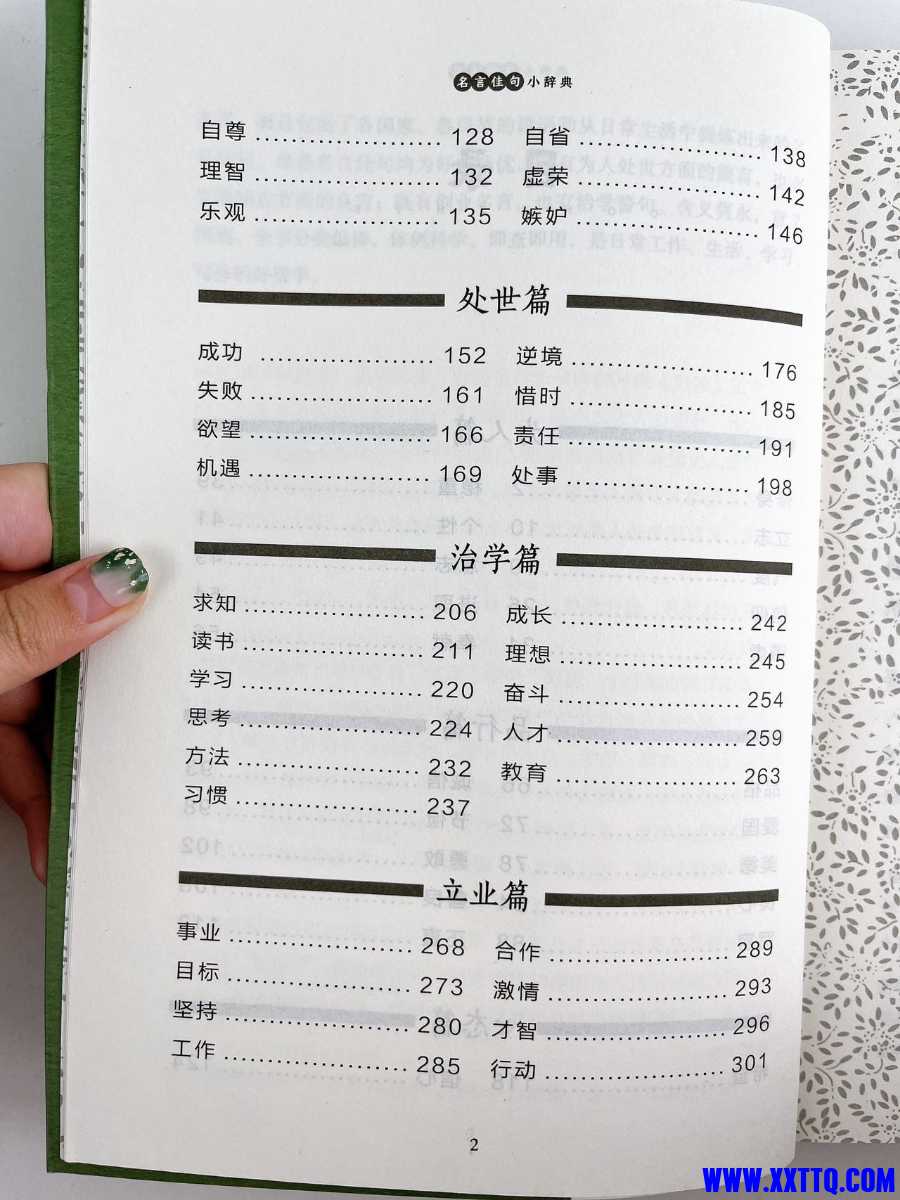 名言佳句小辞典
自尊 128 自省 138
理智 132 虚荣 142
乐观 135 嫉妒 146
处世篇
成功 152 逆境 176
失败 161 惜时 185
欲望 166 责任 191
机遇 169 处事 198
治学篇
求知 206 成长 242
读书 211 理想 245
学习 220 奋斗 254
思考 224 人才 259
方法 232 教育 263
习惯 237
立业篇
事业 268 合作 289
目标 273 激情 293
坚持 280 才智 296
工作 285 行动 301
2
WWW.XXTTQ.COM